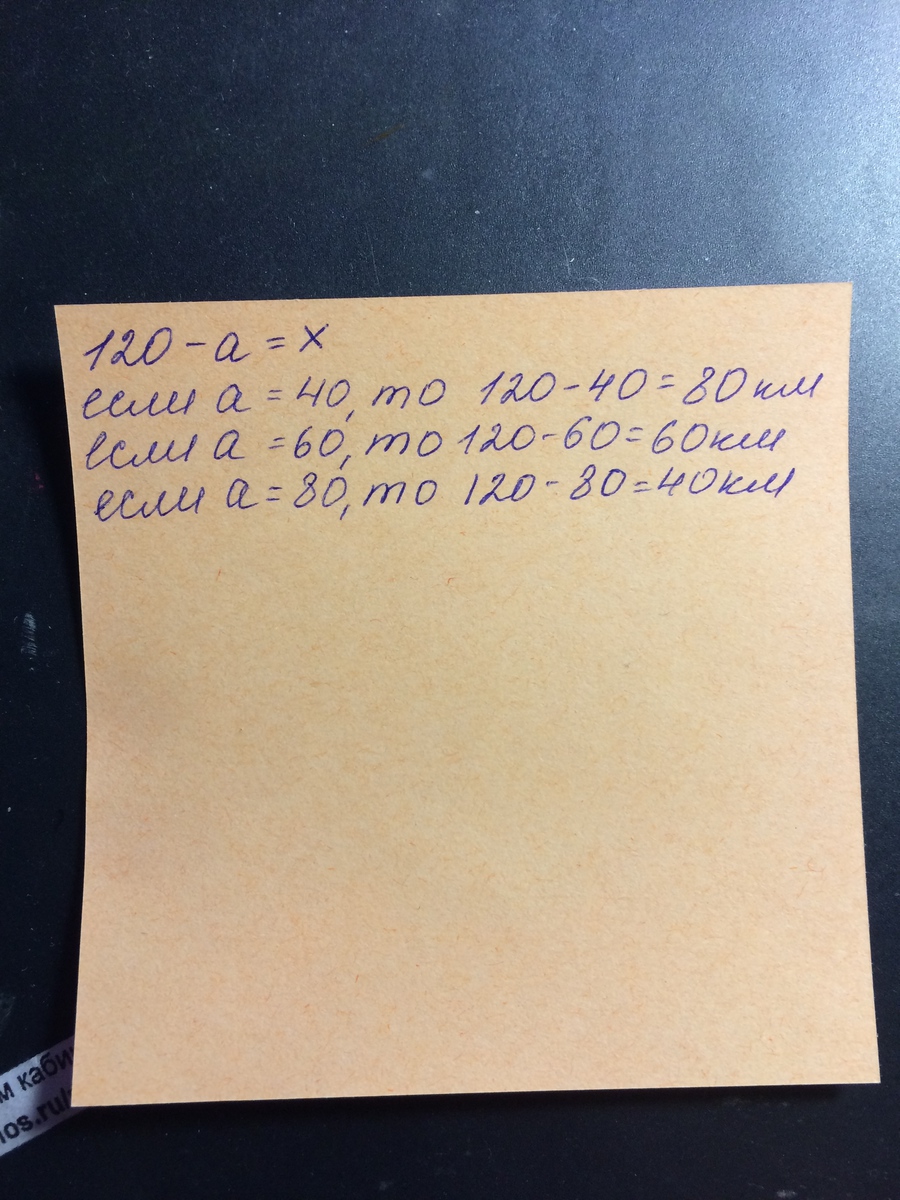 120 - а = x
если а = 40, то 120 - 40 = 80 км
если а = 60, то 120 - 60 = 60 км
если а = 80, то 120 - 80 = 40 км
м каби
los.ru/